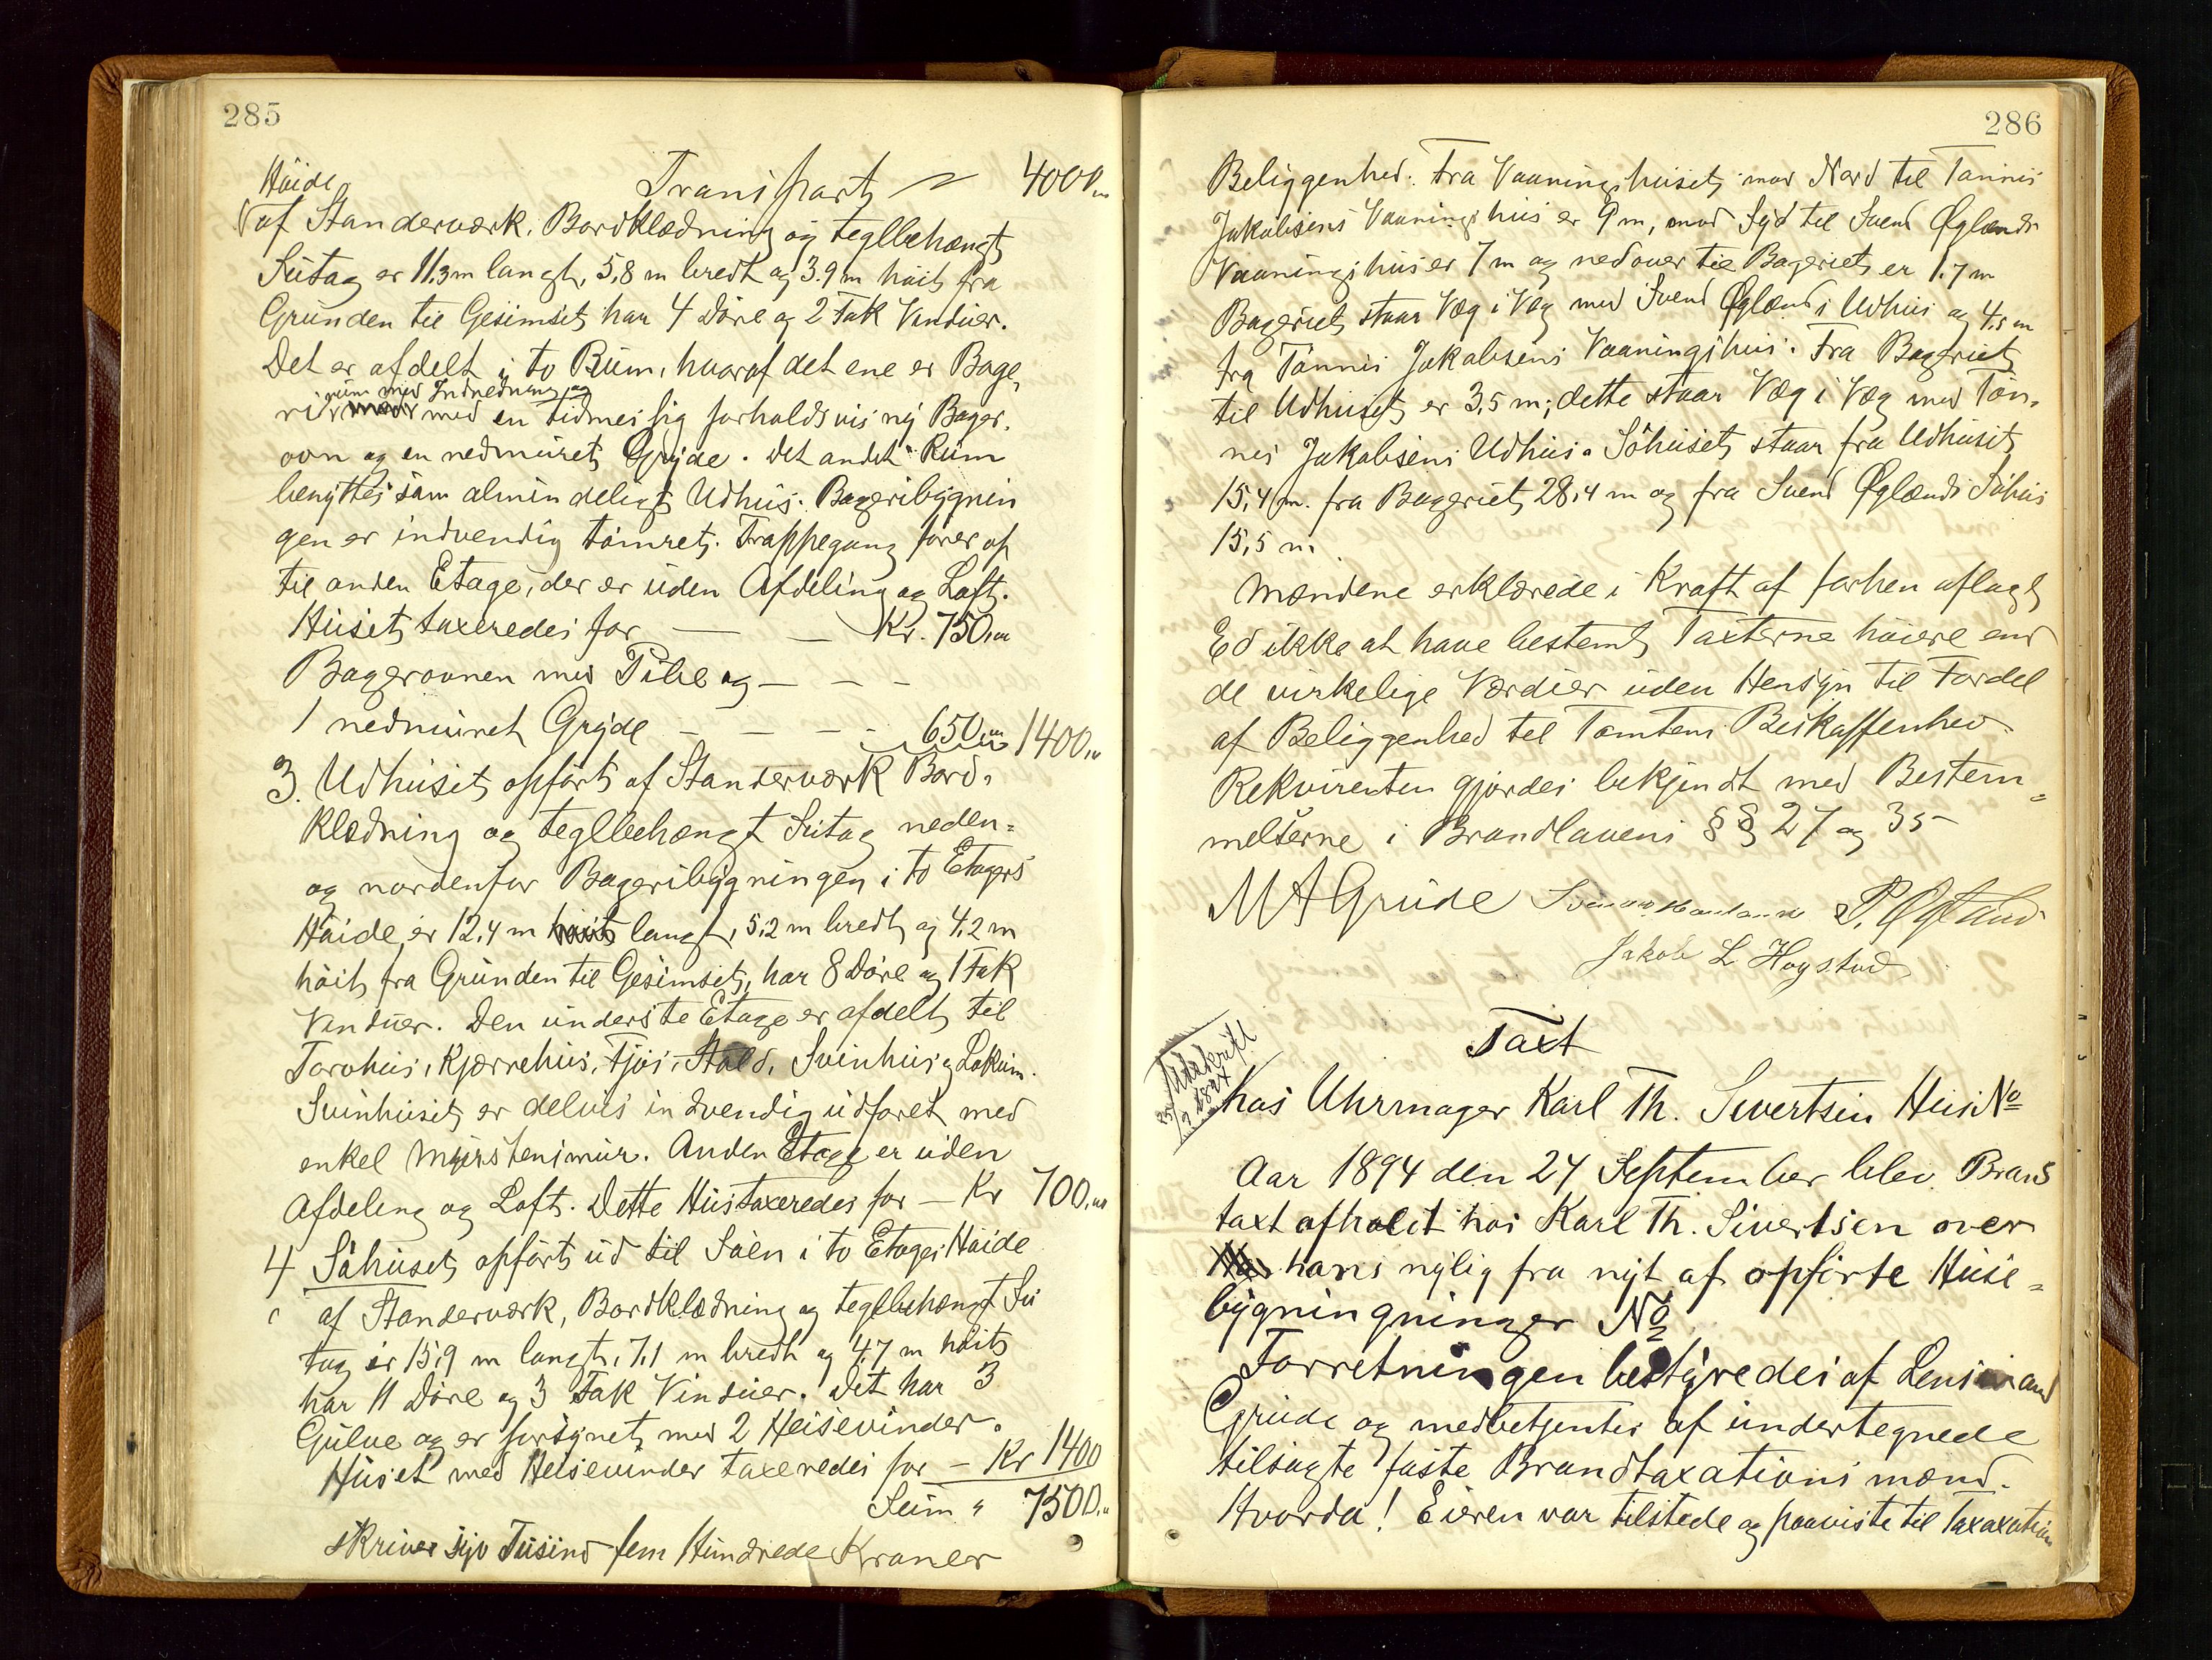 285
Transport 4000,00
Höide
af Standerværk, Bordklædning og teglbehængt
Sutag er 11,3 m langt, 5,8 m bredt og 3.9 m höit fra
Grunden til Gesimset, har 4 Döre og 2 Fak Vinduer.
Det er afdelt i to Rum, hvoraf det ene er Bage-
rum med Indredning og
ri med en tidmessig forholdsvis ny Bager-
ovn og en nedmuret Gryde. Det andet Rum
benyttes som almindeligt Udhus. Bageribygnin
gen er indvendig tömret. Trappegang förer op
til anden Etage, der er uden Afdeling og Loft.
Huset taxeredes for — — Kr. 750,00
Bagerovnen med Pibe og — — —
1 nedmuret Gryde — — — - 650,00 1400,00
3. Udhuset, opfört af Standerværk Bord-
klædning og teglbehængt Sutag neden-
og nordenfor Bageribygningen i to Etagers
Höide, er 12,4 m höit langt, 5,2 m bredt og 4,2 m
höit fra Grunden til Gesimset, har 8 Döre og 1 Fak
Vinduer. Den underste Etage er afdelt til
Torvhus, Kjærrehus, Fjös, Stald, Svinhus og Lokum.
Svinhuset er delvis indvendig udforet med
enkel Murstensmur. Anden Etage er uden
Afdeling og Loft. Dette Hus taxeredes for — Kr 700,00
4 Söhuset, opfört ud til Söen i to Etages Höide
af Standerværk, Bordklædning og teglbehængt Su
tag er 15,9 m langt, 7,1 m bredt og 4,7 m höit
har 11 Döre og 3 Fak Vinduer. Det har 3
Gulve og er forsynet med 2 Heisevinder.
Huset med Heisevinder taxeredes for — Kr 1400
Sum " 7500,00
skriver syv Tusind fem Hundrede Kroner
286
Beliggenhed. Fra Vaaningshuset mod Nord til Tönnes
Jakobsens Vaaningshus er 9 m, mod Syd til Svend Øglænds
Vaaningshus er 7 m og nedover til Bageriet er 1.7 m
Bageriet staar Væg i Væg med Svend Øglænds Udhus og 4,5 m
fra Tönnes Jakobsens Vaaningshus. Fra Bageriet
til Udhuset er 3,5 m; dette staar Væg i Væg med Tön-
nes Jakobsens Udhus. Söhuset staar fra Udhuset
15,4 m. fra Bageriet 28,4 m og fra Svend Øglænds Söhus
15,5 m.
Mændene erklærede i Kraft af forhen aflagt
Ed ikke at have bestemt Taxterne höiere end
de virkelige Værdier uden Hensyn til Fordel
af Beliggenhed til Tomtens Beskaffenhed.
Rekvirenten gjordes bekjendt med Bestem-
melserne i Brandlovens §§ 27 og 35
M A Grude P. Øgland
Jakob L Hogstad
Taxt
Udskrift
hos Uhrmager Karl Th. Sivertsen Hus No
Aar 1894 den 24 September blev Brand
taxt afholdt hos Karl Th. Sivertsen over
hans nylig fra nyt af opförte Huse-
bygningninger No
Forretningen bestyredes af Lensmand
Grude og medbetjentes af undertegnede
tilsagte faste Brandtaxationsmænd.
Hvorda! Eieren var tilstede og paaviste til Taxaxation